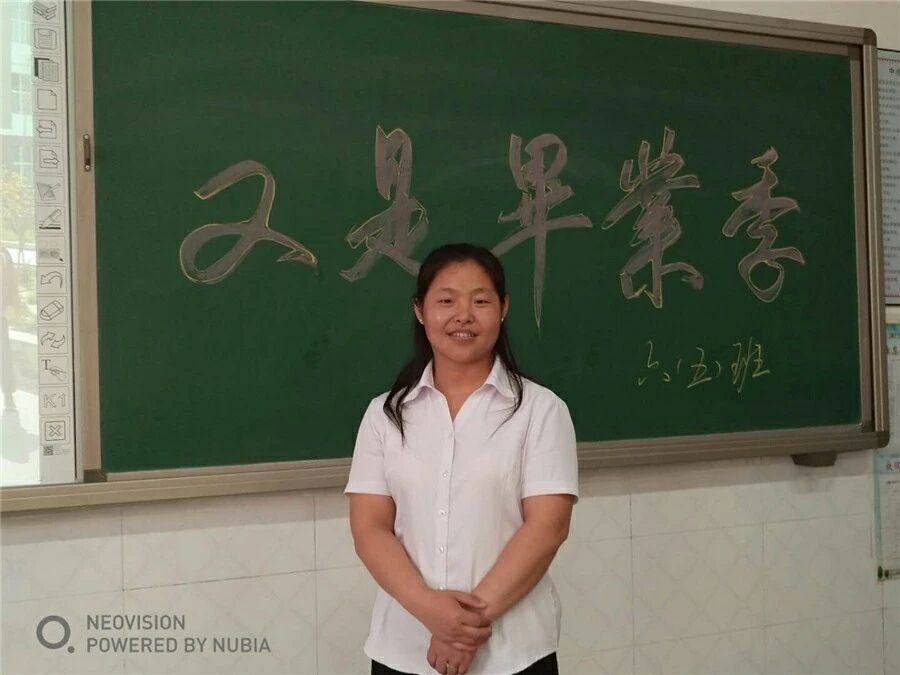 又是毕業季
六(五)班
K1
NEOVISION
POWERED BY NUBIA